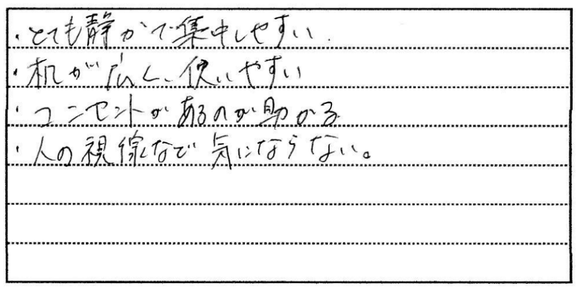 ・とても静かで集中しやすい.
・机が広く、使いやすい
・コンセントがあるのが助かる
・人の視線など気にならない。